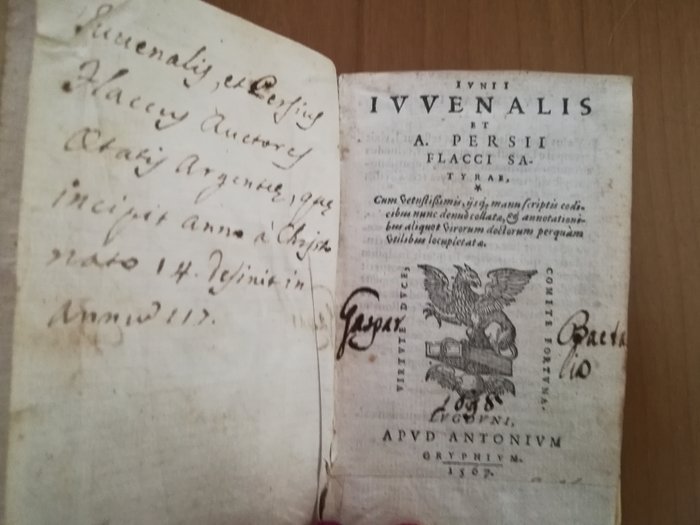 Juuenalis, et Persius
Flaccus Auctores
Ætatis Argenteę, quę
incipit anno à Christo
nato 14. desinit in
Annum 117.
IVNII
IVVENALIS
ET
A. PERSII
FLACCI SA-
TYRAE,
*
Cum vetustissimis, ijsq́; manuscriptis codi-
cibus nunc denuò collatæ, & annotationi-
bus aliquot virorum doctorum perquàm
vtilibus locupletatæ.
VIRTVTE DVCE,
COMITE FORTVNA.
Gaspar
Baeta
lio
LVGDVNI,
APVD ANTONIVM
GRYPHIVM.
1567.